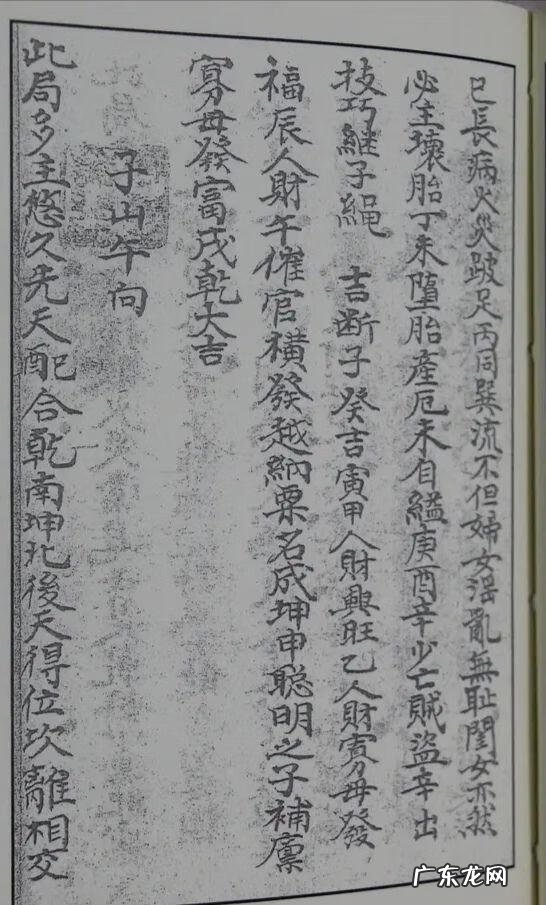 巳長病火災跛足丙同巽流不但婦女淫亂無耻閨女亦然
必主壊胎丁未墮胎產厄未自縊庚酉辛少亡賊盜辛出
技巧継子縄　吉断子癸吉寅甲人財興旺乙人財寡母發
福辰人財午催官橫發越納粟名成坤申聡明之子補廪
寡母發富戌乾大吉
子山午向
此局多主悠久先天配合乾南坤北後天得位坎離相交
广东龙网